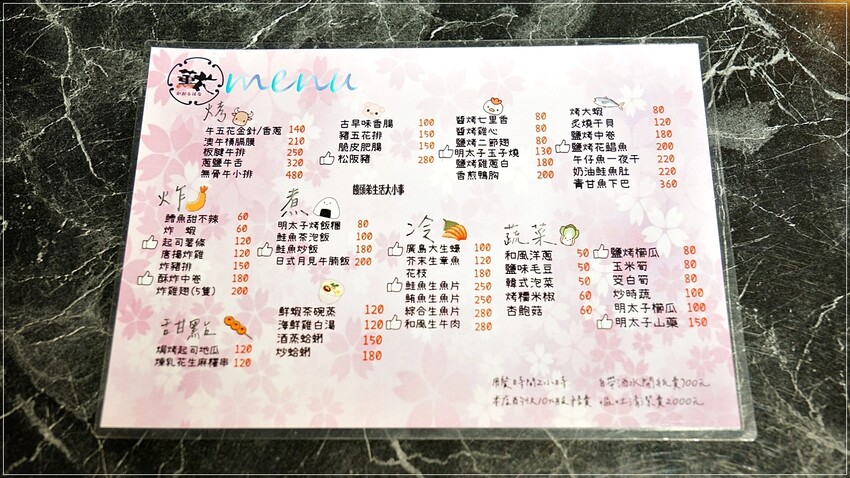 menu
烤
牛五花金針/香蔥 140
澳牛橫膈膜 210
板腱牛排 250
蔥鹽牛舌 320
無骨牛小排 480
古早味香腸 100
豬五花排 150
脆皮肥腸 150
松阪豬 280
皆烤七里香 80
皆烤雞心 80
鹽烤二節翅 80
明太子玉子燒 130
鹽烤雞蔥白 180
香煎鴨胸 200
烤大蝦 80
炙燒干貝 120
鹽烤中卷 180
鹽烤花鯧魚 200
午仔魚一夜干 220
奶油鮭魚肚 220
青甘魚下巴 360
饅頭弟生活大小事
炸
鱈魚甜不辣 60
炸 蝦 60
起司薯條 120
唐揚炸雞 120
炸豬排 150
酥炸中卷 180
炸雞翅(5隻) 200
煮
明太子烤飯糰 80
鮭魚茶泡飯 100
鮭魚炒飯 180
日式月見牛腩飯 200
鮮蝦茶碗蒸 120
海鮮雞白湯 120
酒蒸蛤蜊 150
炒蛤蜊 180
冷
廣島大生蠔 100
芥末生章魚 120
花枝 180
鮭魚生魚片 250
鮪魚生魚片 250
綜合生魚片 280
和風生牛肉 280
蔬菜
和風洋蔥 50
鹽味毛豆 50
韓式泡菜 50
烤糯米椒 60
杏鮑菇 60
鹽烤櫛瓜 80
玉米筍 80
茭白筍 80
炒時蔬 100
明太子櫛瓜 100
明太子山藥 150
舌甘點心
焗烤起司地瓜 120
煉乳花生麻糬串 120
用餐時間2小時
自帶酒水開瓶費100元
本店酌收10%服務費
嘔吐清潔費2000元